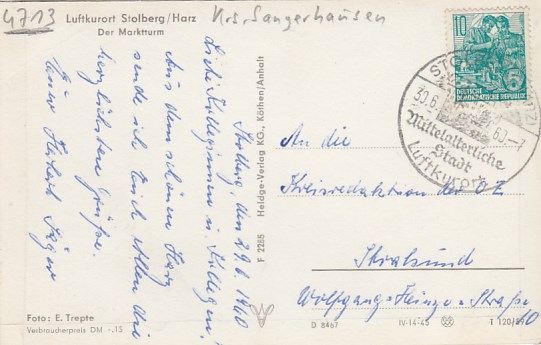 4713
Luftkurort Stolberg/Harz
Krs. Sangerhausen
Der Marktturm
Stolberg, den 29.6.1960
Liebe Kolleginnen u. Kollegen,
Aus dem schönen Harz
sende ich Euch allen die
herzlichsten Grüße.
Euer Herbert Jäger
Foto: E. Trepte
Verbraucherpreis DM -,15
F 2285 Heldge-Verlag KG., Köthen/Anhalt
10
DEUTSCHE
DEMOKRATISCHE REPUBLIK
30.6.60-7
Mittelalterliche
Stadt
Luftkurort
An die
Kreisredaktion der OZ
Stralsund
Wolfgang-Heinze-Straße
10
D 8467
IV-14-45